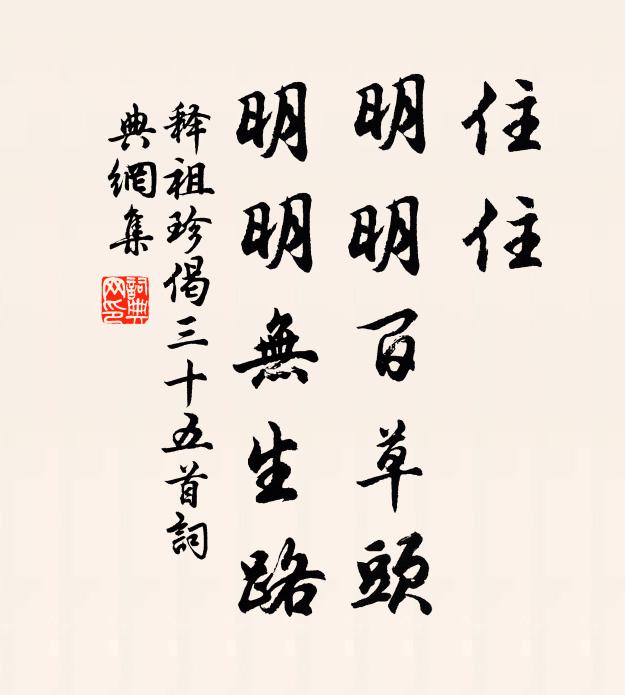 住住
明明百草頭
明明無生路
释祖珍偈三十五首詞
典網集
詞典
网印